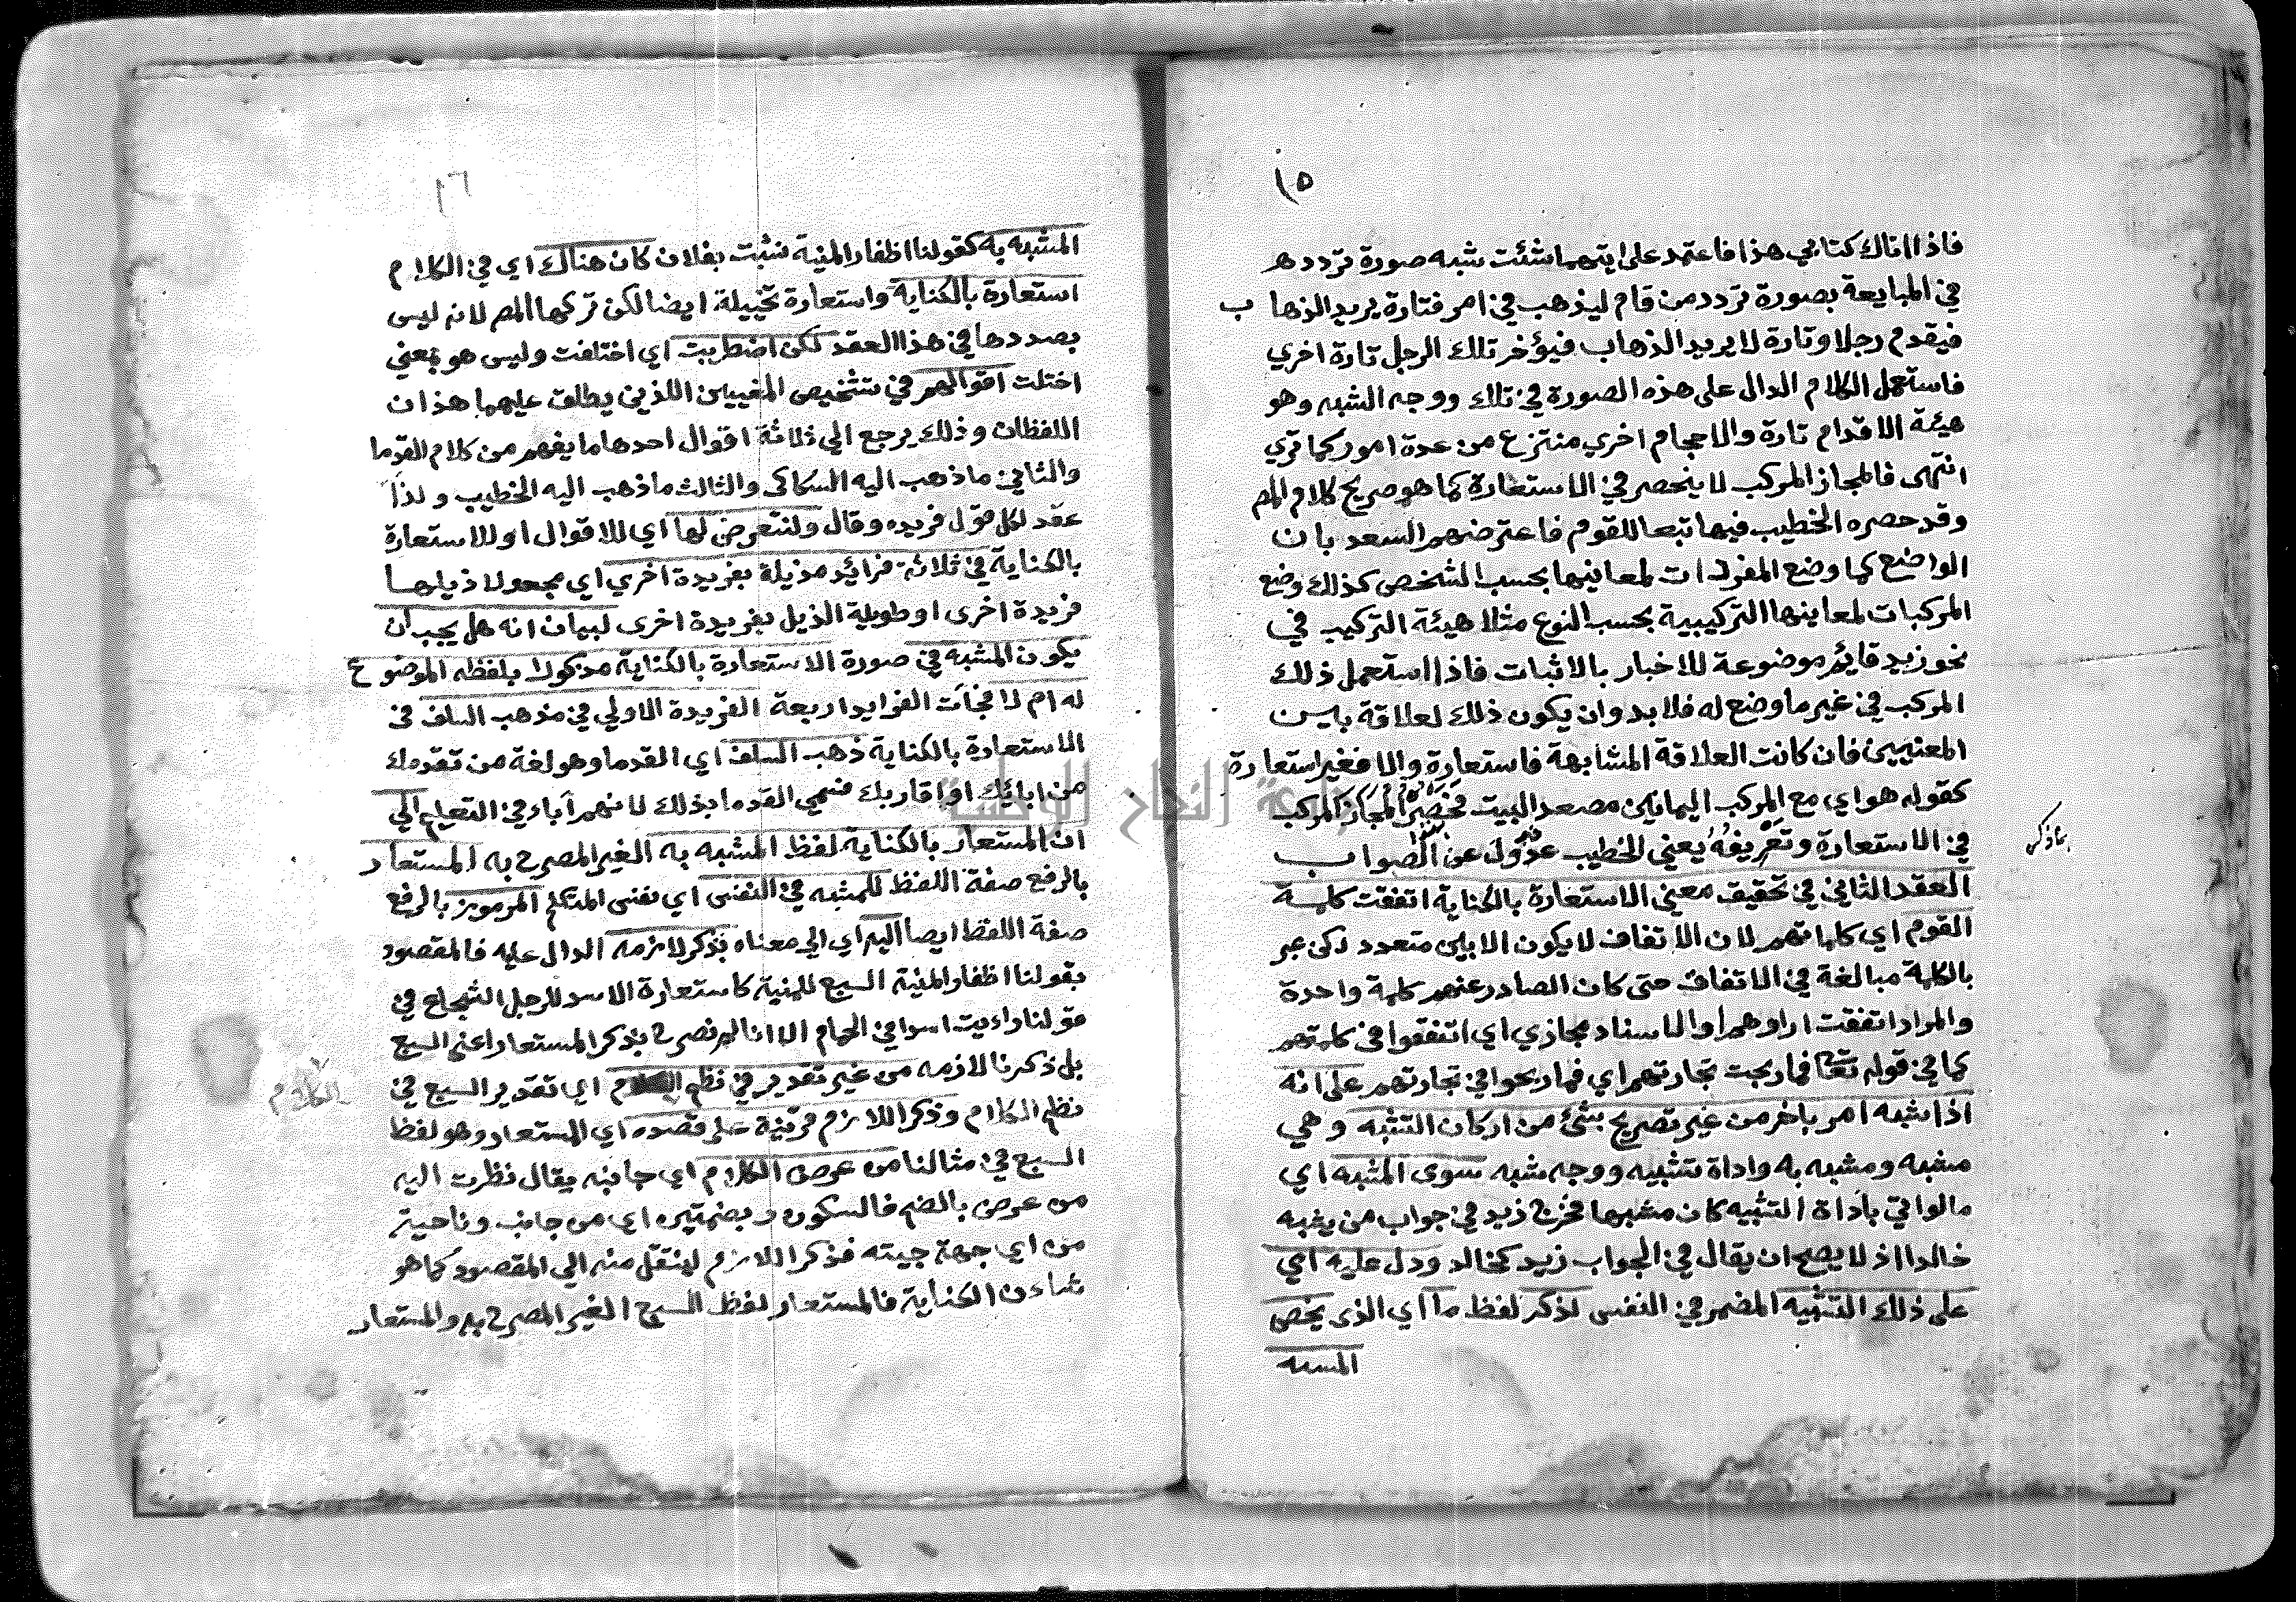 ١٥
فاذا اتاك كتابي هذا فاعتمد على ايتهما شئت شبه صورة تردده
في المبايعة بصورة تردد من قام ليذهب في امر فتارة يريد الذهاب
فيقدم رجلا وتارة لا يريد الذهاب فيؤخر تلك الرجل تارة اخري
فاستعمل الكلام الدال على هذه الصورة في تلك ووجه الشبه وهو
هيئة الاقدام تارة والاحجام اخري منتزع من عدة امور كما تري
انتهى فالمجاز المركب لا ينحصر في الاستعارة كما هو صريح كلام المص
وقد حصره الخطيب فيها تبعا للقوم فاعترضهم السعد بان
الواضع كما وضع المفردات لمعانيها بحسب الشخص كذلك وضع
المركبات لمعاينها التركيبية بحسب النوع مثلا هيئة التركيب في
نحو زيد قايم موضوعة للاخبار بالاثبات فاذا استعمل ذلك
المركب في غير ما وضع له فلا بد وان يكون ذلك لعلاقة بين
المعنيين فان كانت العلاقة المشابهة فاستعارة والا فغير استعارة
كقوله هواي مع المركب اليمانين مصعد البيت فحصر المجاز المركب
في الاستعارة وتعريفه يعني الخطيب عدول عن الصواب
بما ذكر
العقد الثاني في تحقيق معني الاستعارة بالكناية اتفقت كلمة
القوم اي كلماتهم لان الاتفاق لا يكون الا بين متعدد لكن عبر
بالكلمة مبالغة في الاتفاق حتى كان الصادر عنهم كلمة واحدة
والمراد اتفقت اراوهم والاسناد مجازي اي اتفقوا في كلمتهم
كما في قوله تعا فما ربحت تجارتهم اي فما ربحوا في تجارتهم على انه
اذا شبه امر باخر من غير تصريح بشئ من اركان التشبه وهي
مشبه ومشبه به واداة تشبيه ووجه شبه سوى المشبه اي
مالوا في باداة التشبيه كان مشبها فخرج زيد في جواب من يشبه
خالدا اذ لا يصح ان يقال في الجواب زيد كخالد ودل عليه اي
على ذلك التشبيه المضمر في النفس بذكر لفظ ما اي الذي يخص
المشبه
١٦
المشبه به كقولنا اظفار المنية نشبت بفلان كان هناك اي في الكلام
استعارة بالكناية واستعارة تخييلة ايضا لكن تركها المص لانه ليس
بصددها في هذا العقد لكن اضطربت اي اختلفت وليس هو بمعني
اختلت اقوالهم في تشخيص المعنيين اللذين يطلق عليهما هذان
اللفظان وذلك يرجع الي ثلاثة اقوال احدها ما يفهم من كلام القدما
والثاني ما ذهب اليه السكاكى والثالث ما ذهب اليه الخطيب ولذا
عقد لكل قول فريده وقال ولنتعرض لها اي للاقوال او للاستعارة
بالكناية في ثلاثة فرائد مذيلة بفريدة اخري اي مجعولا ذيلها
فريدة اخرى او طويلة الذيل بفريدة اخرى لبيان انه هل يجب ان
يكون المشبه في صورة الاستعارة بالكناية مذكورا بلفظه الموضوع
له ام لا فجآت الفرايد اربعة الفريدة الاولي في مذهب السلف في
الاستعارة بالكناية ذهب السلف اي القدما وهو لغة من تقدمك
من ابائك او اقاربك فسمي القدما بذلك لانهم آباء في التعليم الي
ان المستعار بالكناية لفظ المشبه به الغير المصرح به المستعار
بالرفع صفة اللفظ للمشبه في النفس اي نفس المتكلم المرموز بالرفع
صفة اللفظ ايضا اليه اي الي معناه بذكر لازمه الدال عليه فالمقصود
بقولنا اظفار المنية السبع للمنية كاستعارة الاسد للرجل الشجاع في
قولنا رايت اسدا في الحمام الا انا لم نصرح بذكر المستعار اعني السبع
بل ذكرنا لازمه من غير تقدير في نظم الكلام اي تقدير السبع في
الكلام
نظم الكلام وذكر اللازم قرينة على قصده اي المستعار وهو لفظ
السبع في مثالنا من عرض الكلام اي جانبه يقال نظرت اليه
من عرض بالضم فالسكون وبضمتين اي من جانب وناحية
من اي جهة جيته فذكر اللازم لينتقل منه الي المقصود كما هو
شان الكناية فالمستعار لفظ السبع الغير المصرح به والمستعار